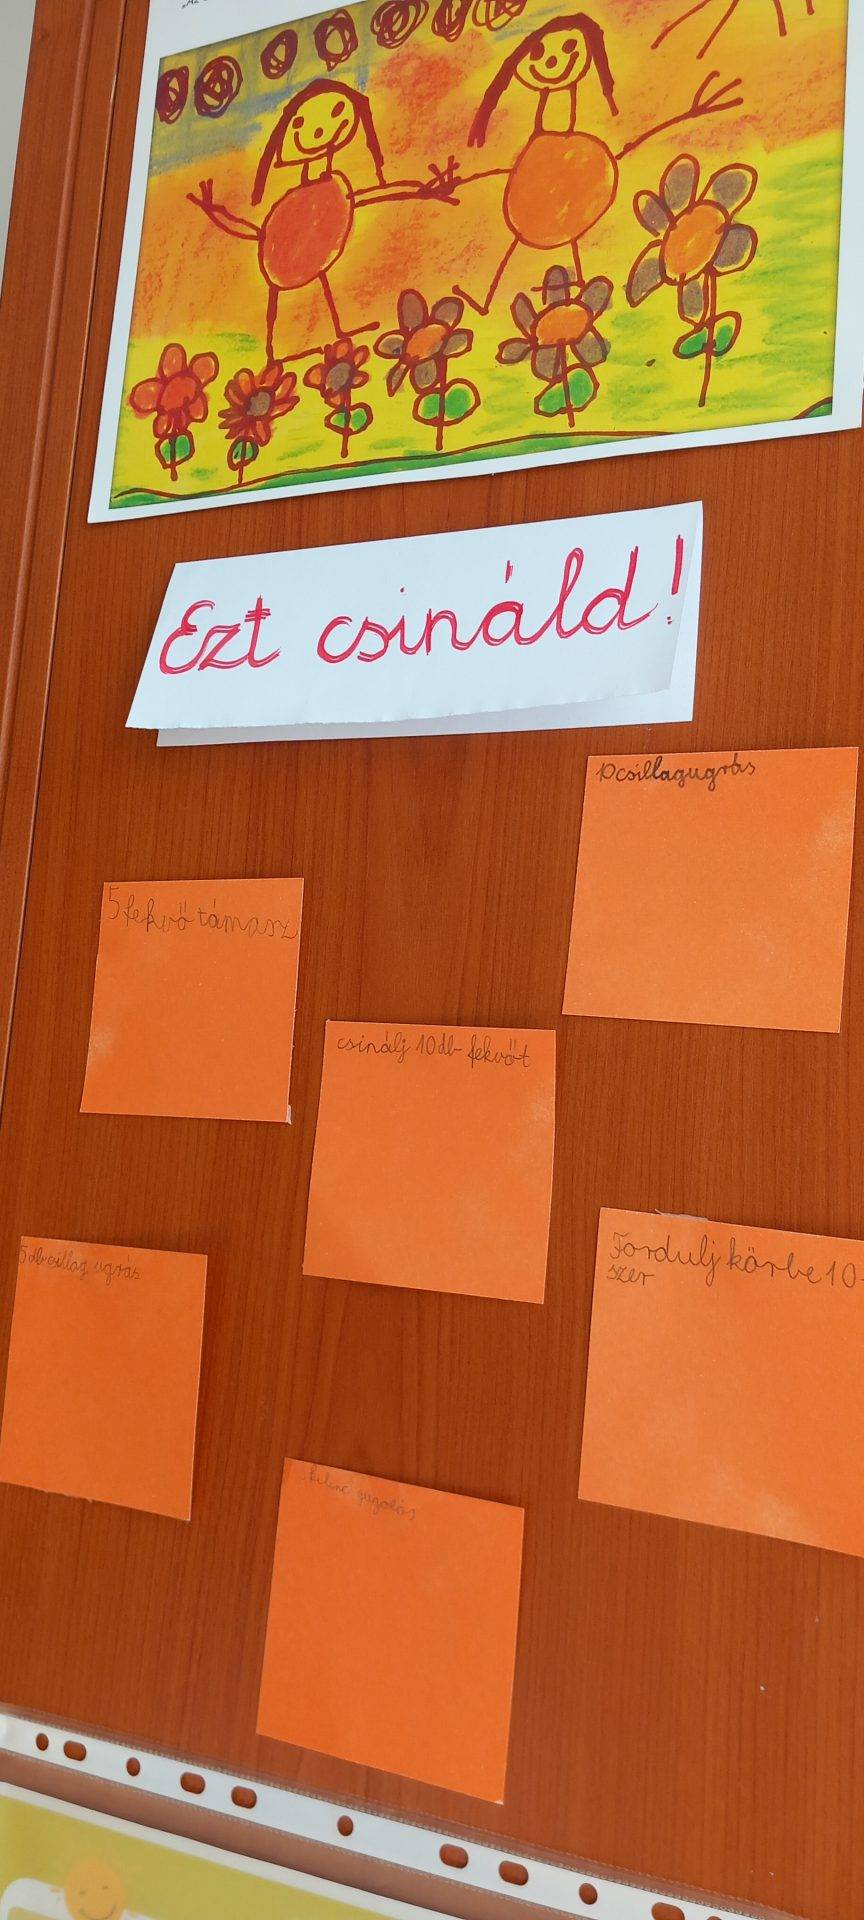 Ezt csináld!
10 csillagugrás
5 fekvő támasz
csinálj 10 db fekvőt
5 db csillag ugrás
Fordulj körbe 10-
szer
kilenc guggolás